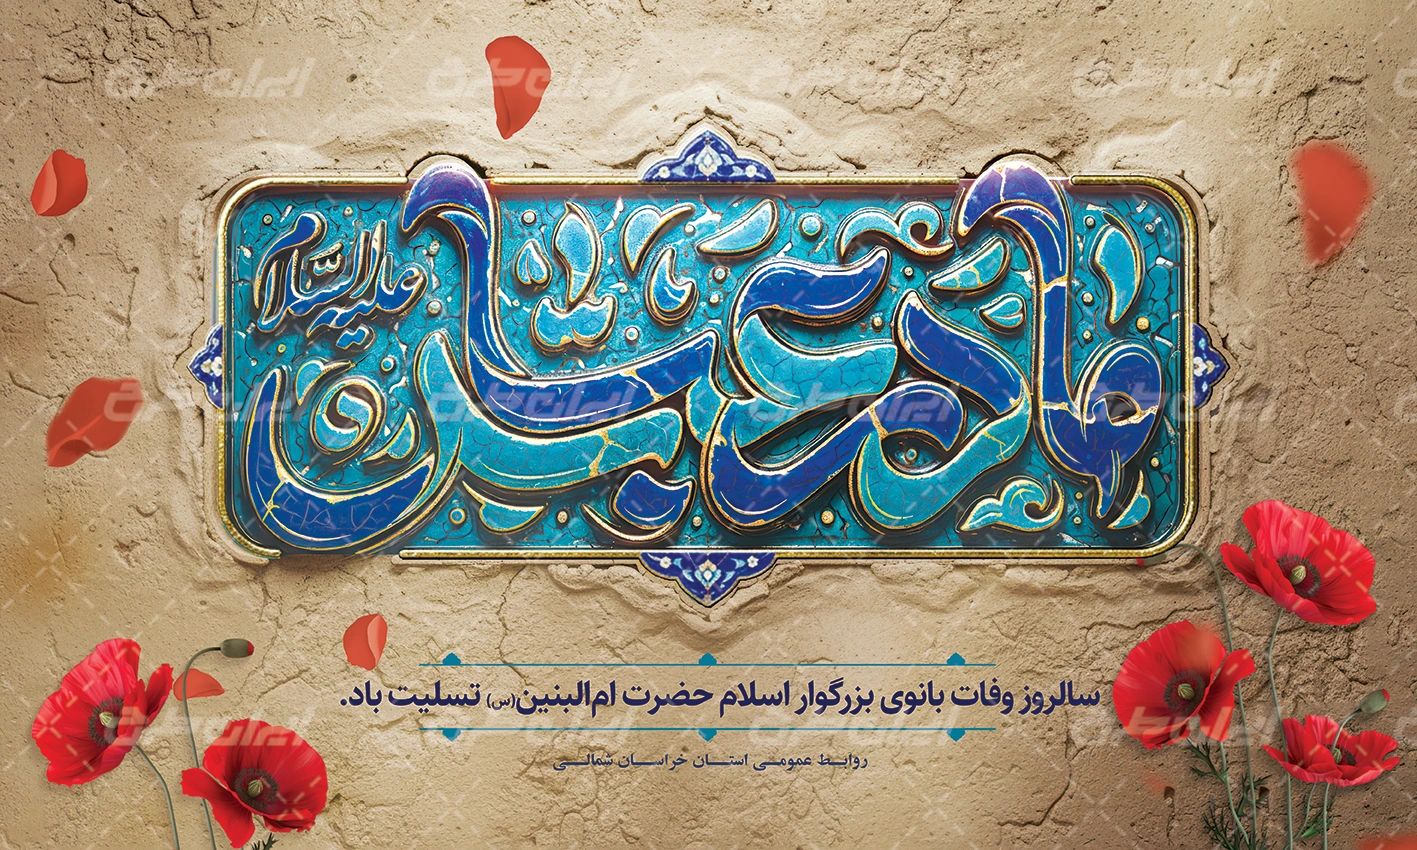 مادر عباس
علیه السلام
سالروز وفات بانوی بزرگوار اسلام حضرت ام‌البنین(س) تسلیت باد.
روابط عمومی استان خراسان شمالی
ایران طرح